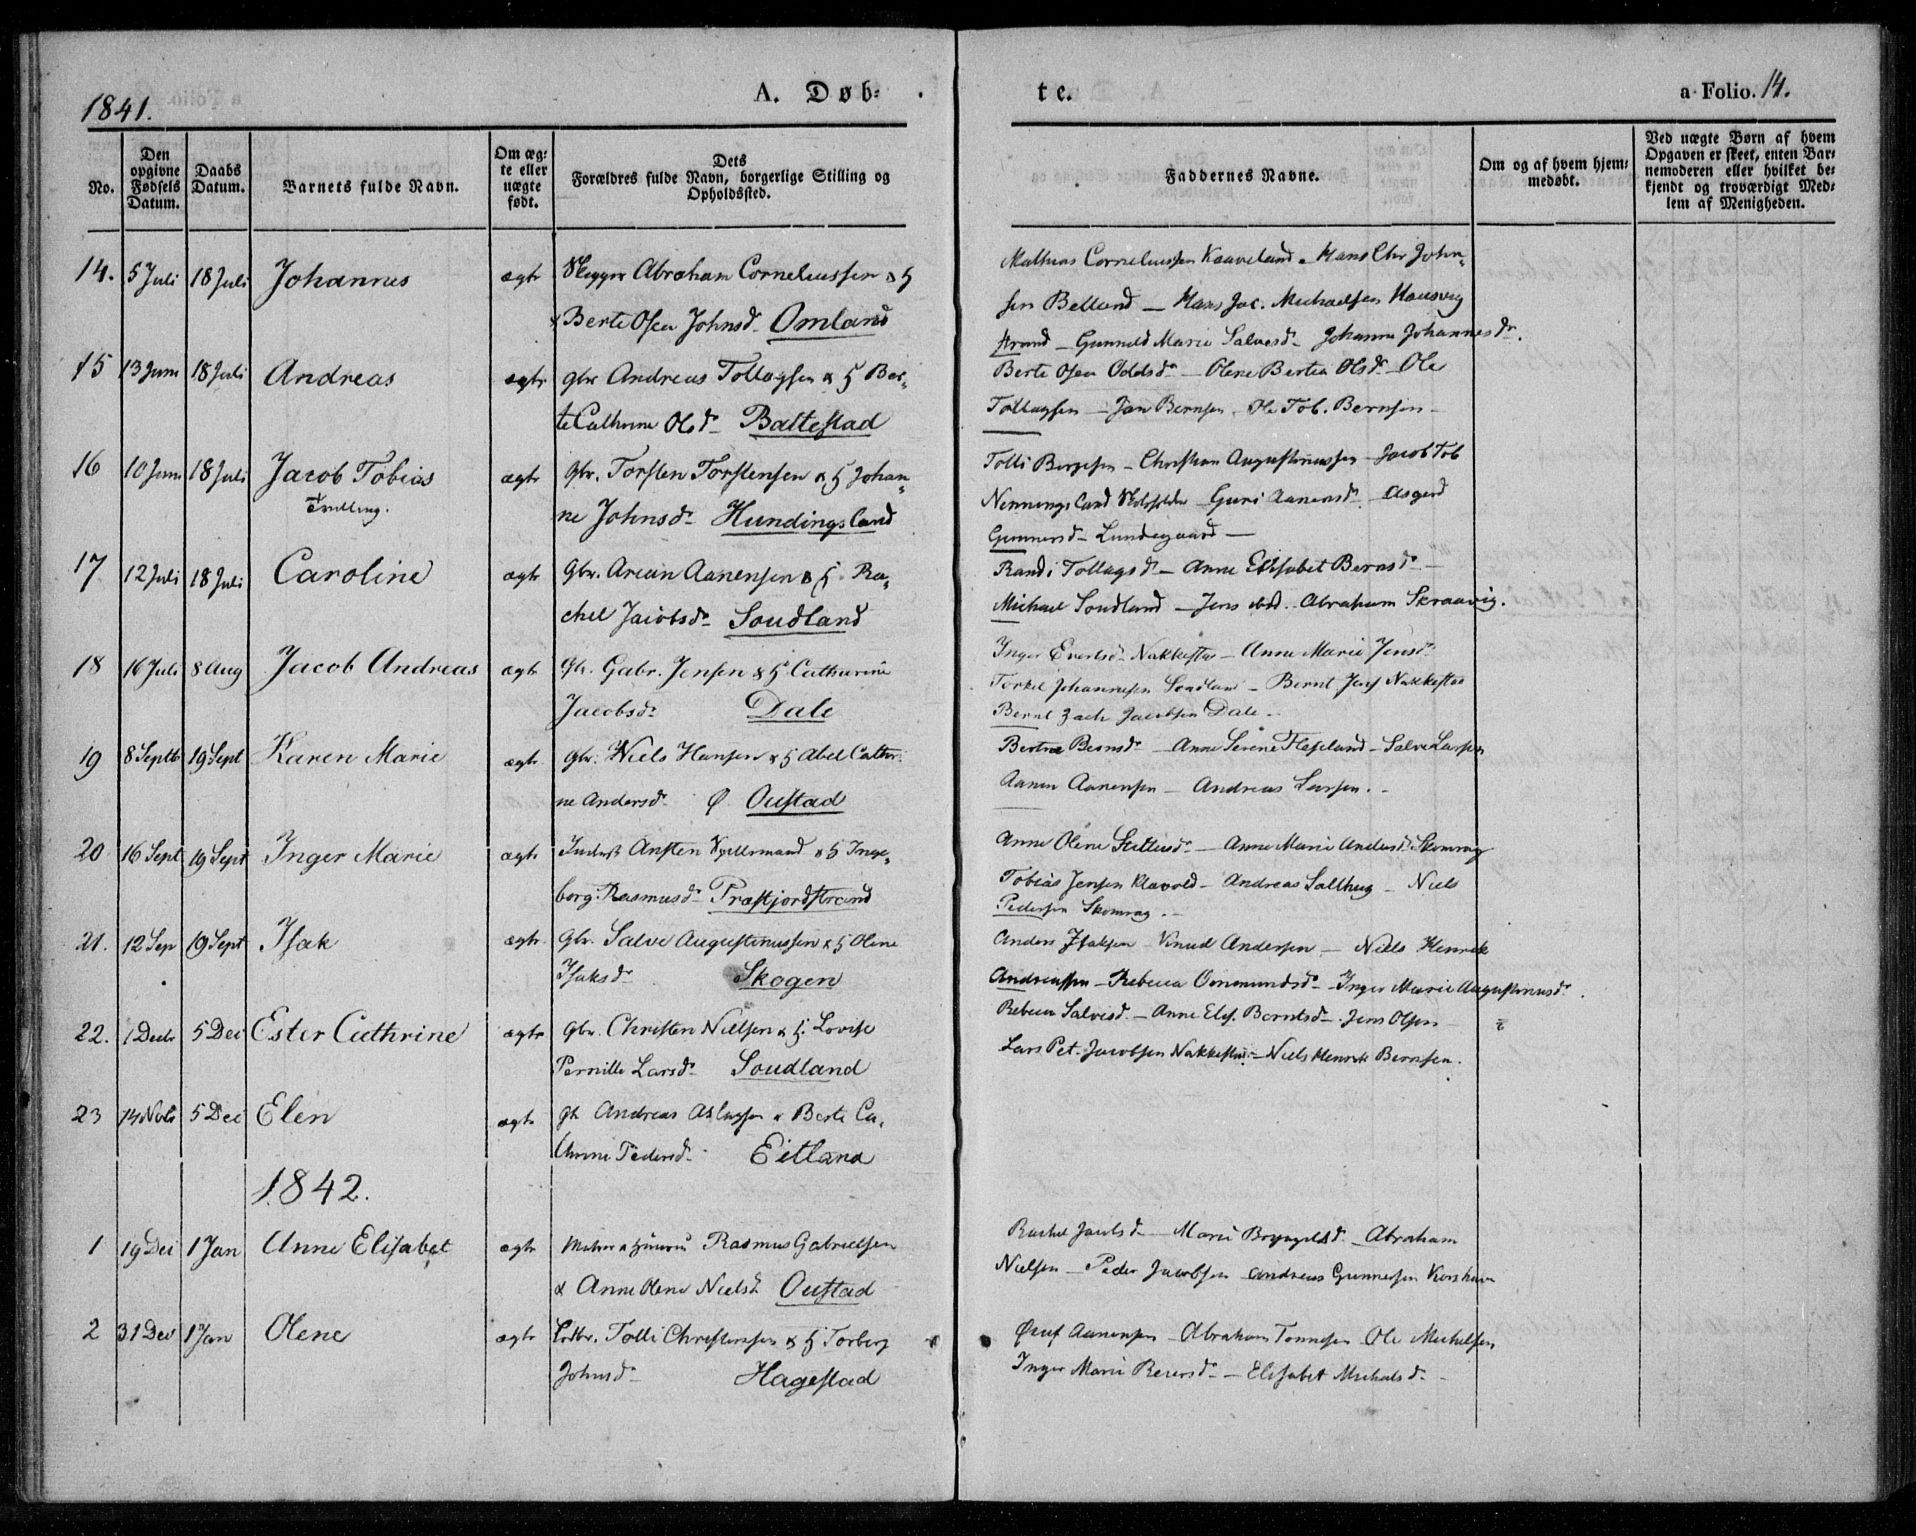 1841.
A. Døb-
te.
a Folio. 14.
No.
Den opgivne Fødsels Datum.
Daabs Datum.
Barnets fulde Navn.
Om æg-
te eller
uægte
født.
Dets
Forældres fulde Navn, borgerlige Stilling og
Opholdssted.
Faddernes Navne.
Om og af hvem hjem-
medøbt.
Ved uægte Børn af hvem
Opgaven er skeet, enten Bar-
nemoderen eller hvilket be-
kjendt og troværdigt Med-
lem af Menigheden.
14. 5 Juli 18 Juli Johannes ægte Abraham Corneliussen & H
Berte Osea Johnsd. Omland
Mathias Corneliussen Kaaveland - Hans Chr John-
sen Belland - Hans Jac. Michaelsen Hausvig
strand - Gunneld Marie Salvesd. Johanne Johannesd.
15 13 Juni 18 Juli Andreas ægte gbr Andreas Tollagsen & H Ber-
te Cathrine Olsd. Battestad
Berte Osea Oddsd. - Olene Bertea Olsd. Ole
Tollagsen - Jan Bernsen - Ole Tob. Bernsen -
16 10 Juni 18 Juli Jacob Tobias ægte Gbr. Torsten Torstensen & H Johan-
Tvilling.
ne Johnsd. Hundingsland
Tolli Bergesen - Christian Augustinussen - Jacob Tob
Nenningsland - Guri Aanensd. Asgerd
Gunnersd. Lundegaard -
17 12 Juli 18 Juli Caroline ægte Gbr. Arian Aanensen & H Ra-
chel Jacobsd. Soudland
Randi Tollagsd. - Anne Elisabet Bernsd. -
Michael Soudland - Jens ibid. Abraham Skraavig.
18 16 Juli 8 Aug Jacob Andreas ægte Gbr. Gabr. Jensen & H Cathrine
Jacobsd. Dale
Inger Evertsd. Nakkestad - Anne Marie Jensd.
Torkel Johannesen Soudland - Bernt Jens Nakkestad
Bernt Zach Jacobsen Dale -
19 8 Septb 19 Sept Karen Marie ægte Gbr. Niels Hansen & H Abel Cathri-
ne Andersd. Ø. Oustad
Bertne Bernsd. - Anne Serene Fleseland - Salve Larsen
Aanen Aanensen - Andreas Larsen. -
20 16 Sept 19 Sept Inger Marie ægte Inderst Ansten Spillemand & H Inge-
borg Rasmusd. Præstjordstrand
Anne Olene - Anne Marie Andersd. Skomrag
Tobias Jensen Klavold - Andreas Salthug - Niels
Pedersen Skomrag. -
21. 12 Sep 19 Sept Isak ægte Gbr. Salve Augustinussen & H Olene
Isaksd. Skogen
Anders Isaksen - Knud Andersen - Niels Henrik
Andreassen - Rebecca Ommundsd. - Inger Marie Augustinusd.
22. 1 Decbr 5 Dec Ester Cathrine ægte Gbr. Christen Nielsen & H. Lovise
Pernille Larsd. Soudland
Rebecca Salvesd. - Anne Elis. Berntsd. - Jens Olsen
Lars Pet. Jacobsen Nakkestad - Niels Henrik Bernsen.
23 14 Novb 5 Dec Elen ægte gb Andreas Aslagsen & Berte Ca-
thrine Pedersd. Eitland
1842.
1 19 Dec 1 Jan Anne Elisabet ægte Rasmus Gabrielsen
& Anne Olene Nielsd. Oustad
Rachel Jacobsd. - Marie Bryngelsd. Abraham
Nielsen - Peder Jacobsen Andreas Gunnersen Korshavn
2 31 Dec 1 Jan Olene ægte Tolli Christensen & H Torberg
Johnsd. Hagestad
Aanensen - Abraham Tønnesen Ole Michelsen
Inger Marie Reiersd. - Elisabet Michelsd. -